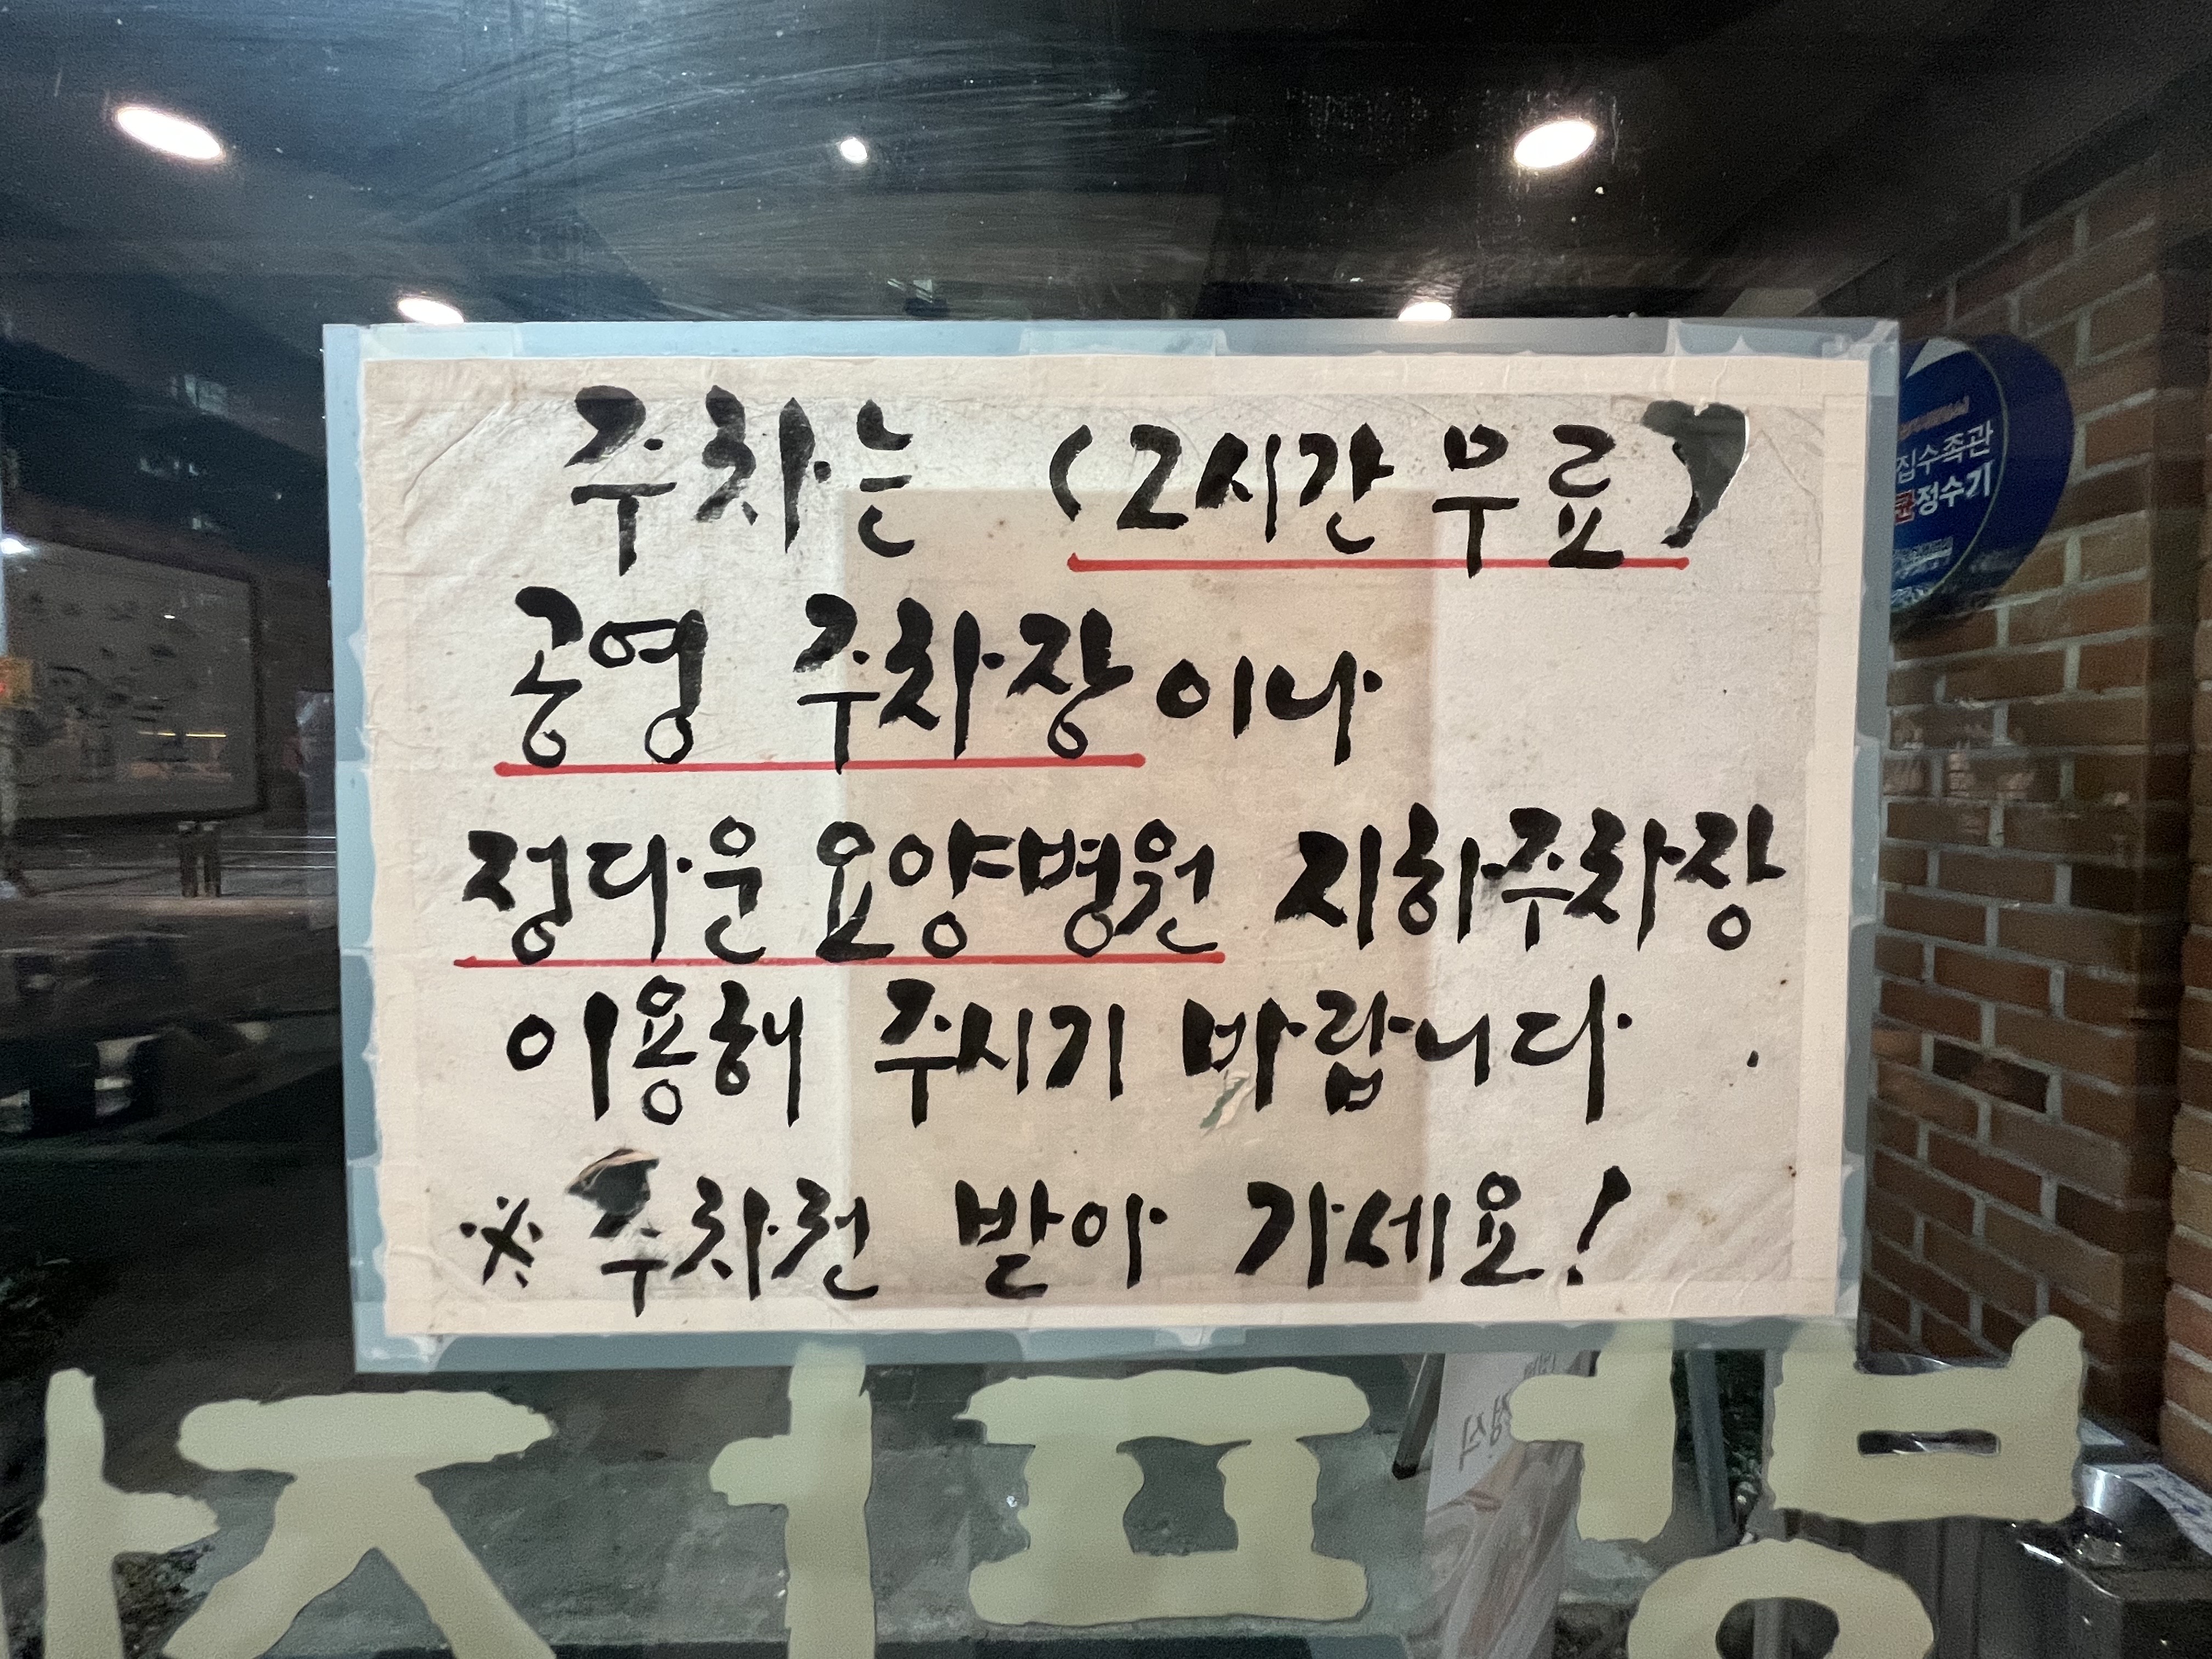 주차는 (2시간 무료)
공영 주차장이나
정다운 요양병원 지하주차장
이용해 주시기 바랍니다.
※ 주차권 받아 가세요!
집수족관
균정수기